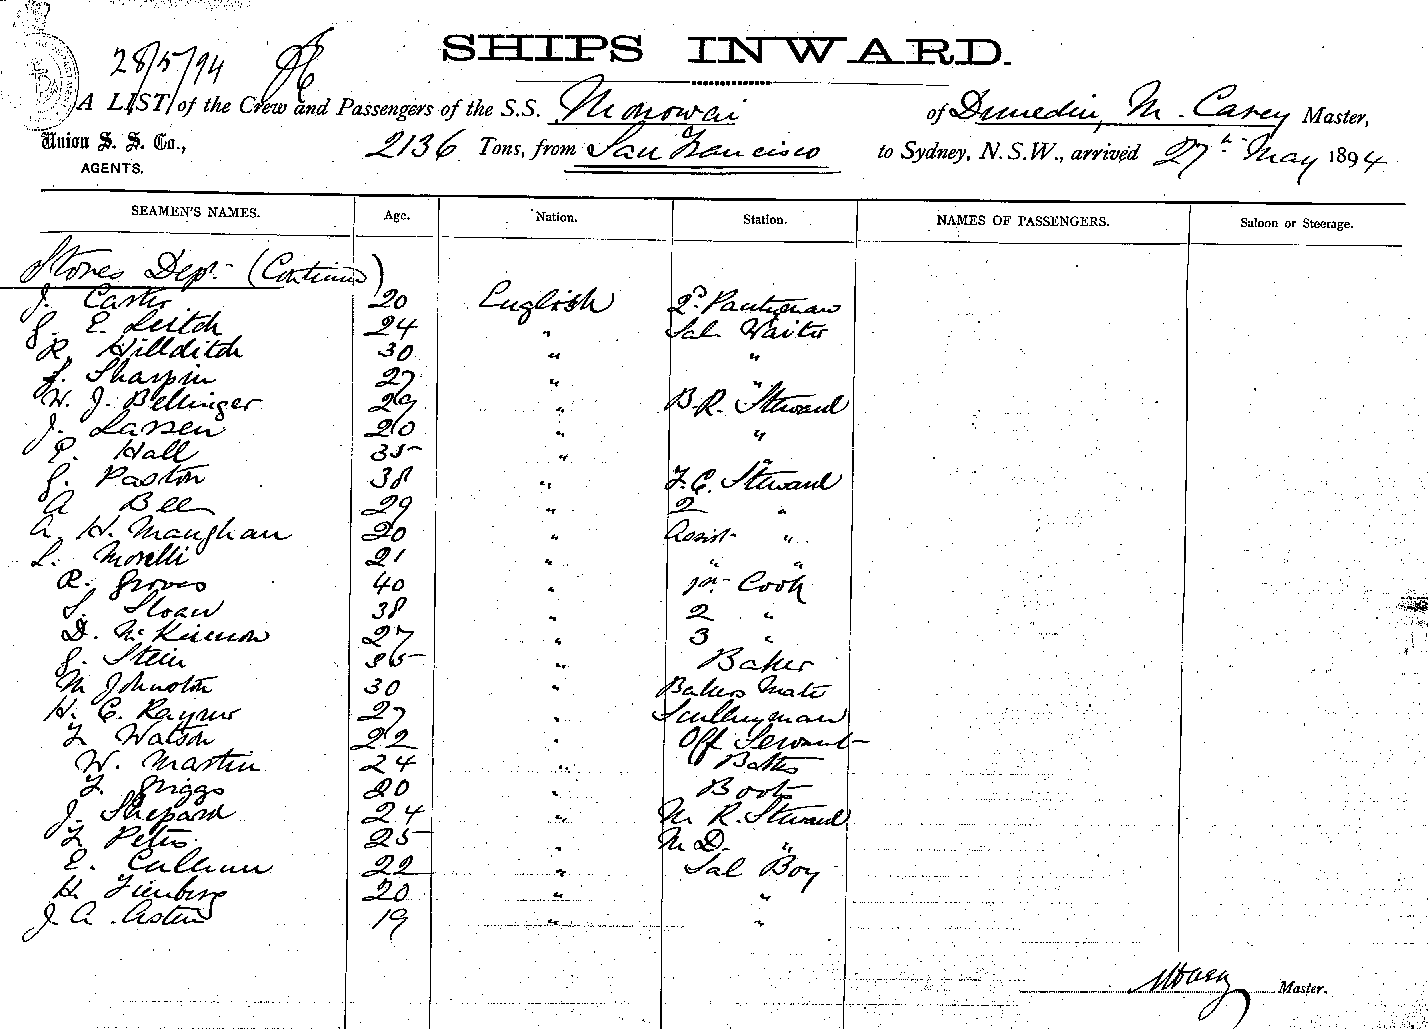 28/5/94
SHIPS INWARD.
A LIST of the Crew and Passengers of the S.S. Monowai of Dunedin, M. Carey Master,
Union S. S. Co., 2136 Tons, from San Francisco to Sydney, N.S.W., arrived 27th May 1894
AGENTS.
SEAMEN'S NAMES. Age. Nation. Station. NAMES OF PASSENGERS. Saloon or Steerage.
Stores Dept (Continued)
J. Carter 20 English 2d Pantryman
G. E. Leitch 24 " Sal Waiter
R. Hillditch 30 " "
F. Sharpin 27 " "
W. J. Bellinger 29 " B.R. Steward
J. Larsen 20 " "
P. Hall 35 " "
G. Paston 38 " F.C. Steward
A Bee 29 " 2 "
A. H. Maughan 20 " Assist "
L. Morelli 21 " " "
R. Groves 40 " Cook
S. Sloan 38 " 2 "
D. McKinnon 27 " 3 "
G. Stein 35 " Baker
M Johnston 30 " Bakers Mate
H. C. Rayner 27 " Sculleryman
F. Watson 22 " Off Servant
W. Martin 24 " Baths
F. Griggs 20 " Boots
J. Shepard 24 " M. R. Steward
F. Peters 25 " M D. "
E. Culhane 22 " Sal Boy
H. Fienberg 20 " "
J. A. Asten 19 " "
MCarey Master.